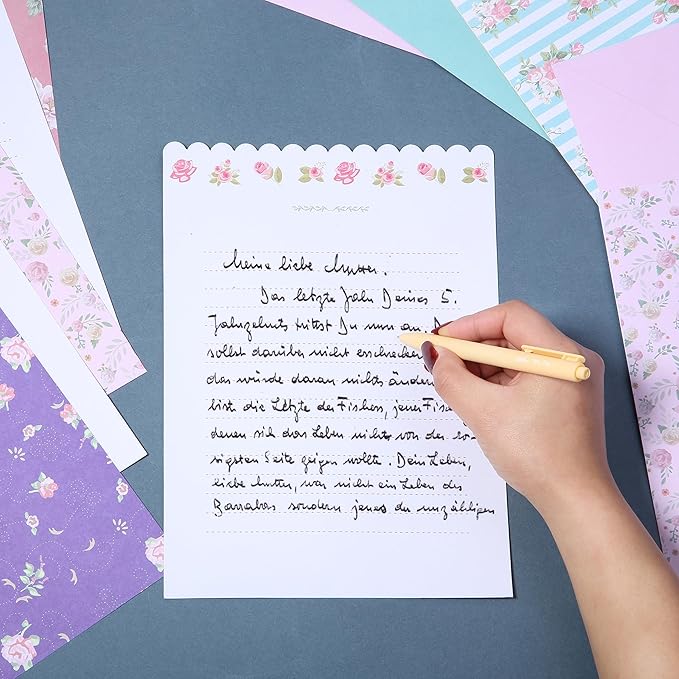 Meine liebe Mutter.
Das letzte Jahr Deines 5.
Jahrzehnts trittst Du nun an. D
sollst darüber nicht erschrecke
das würde daran nichts änder
bist die Letzte der Fishers, jener Fis
denen sich das Leben nichts von der ro-
sigsten Seite zeigen wollte. Dein Leben,
liebe Mutter, war nicht ein Leben des
Barrabas sondern jenes der unzähligen